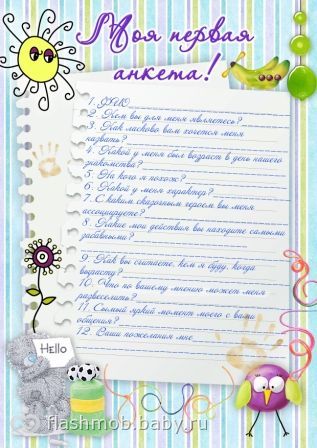 Моя первая
анкета!
1. ФИО
2. Кем вы для меня являетесь?
3. Как ласково вам хочется меня
назвать?
4. Какой у меня был возраст в день нашего
знакомства?
5. На кого я похож?
6. Какой у меня характер?
7. С каким сказочным героем вы меня
ассоциируете?
8. Какие мои действия вы находите самыми
забавными?
9. Как вы считаете, кем я буду, когда
вырасту?
10. Что по вашему мнению может меня
развеселить?
11. Самый яркий момент моего с вами
общения?
12. Ваши пожелания мне
Hello
flashmob.baby.ru